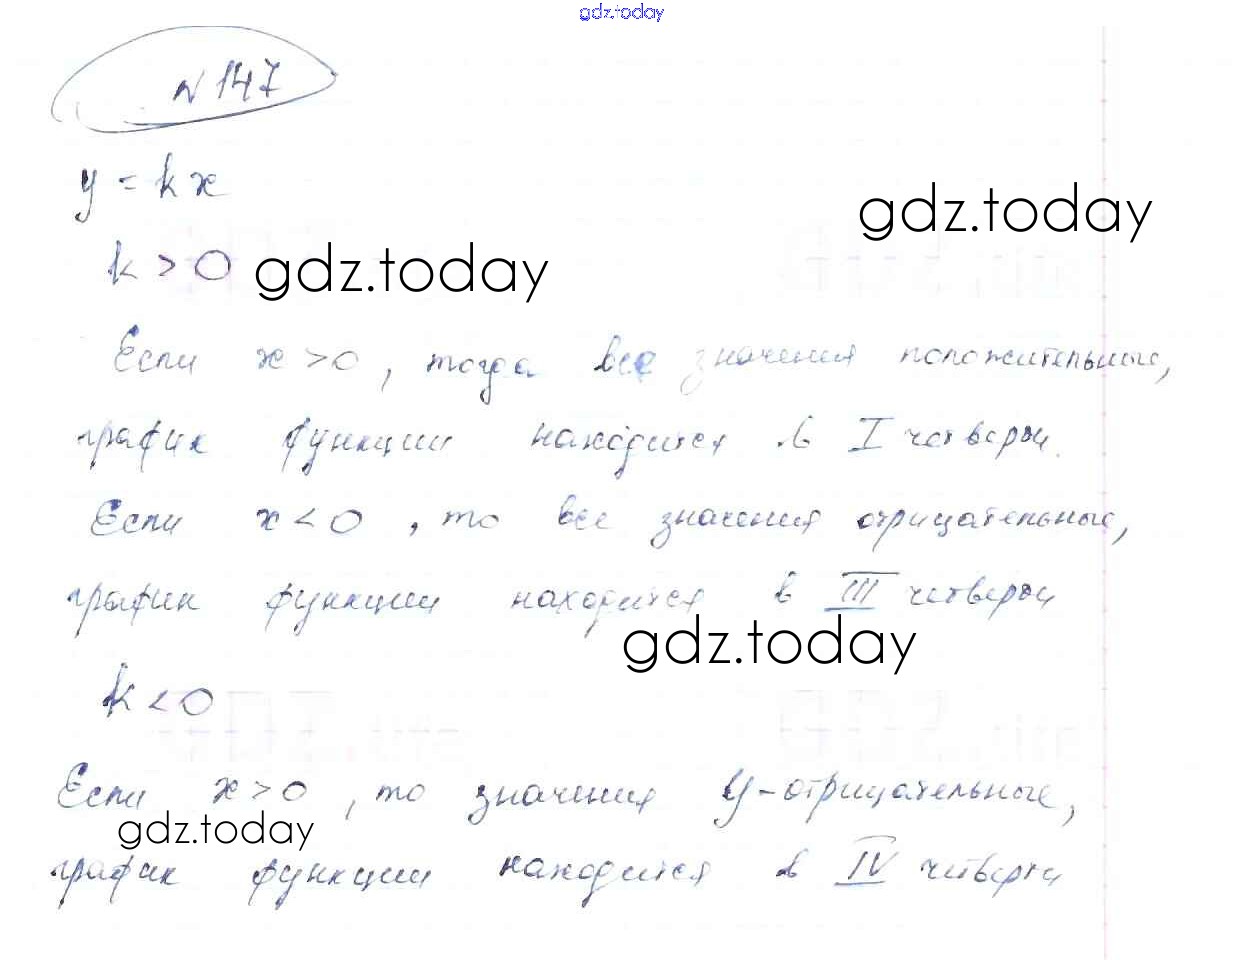 gdz.today
№147
y = kx
gdz.today
k > 0 gdz.today
Если x > 0, тогда все значения положительные,
график функции находится в I четверти.
Если x < 0, то все значения отрицательные,
график функции находится в III четверти
gdz.today
k < 0
Если x > 0, то значения y - отрицательные,
gdz.today
график функции находится в IV четверти